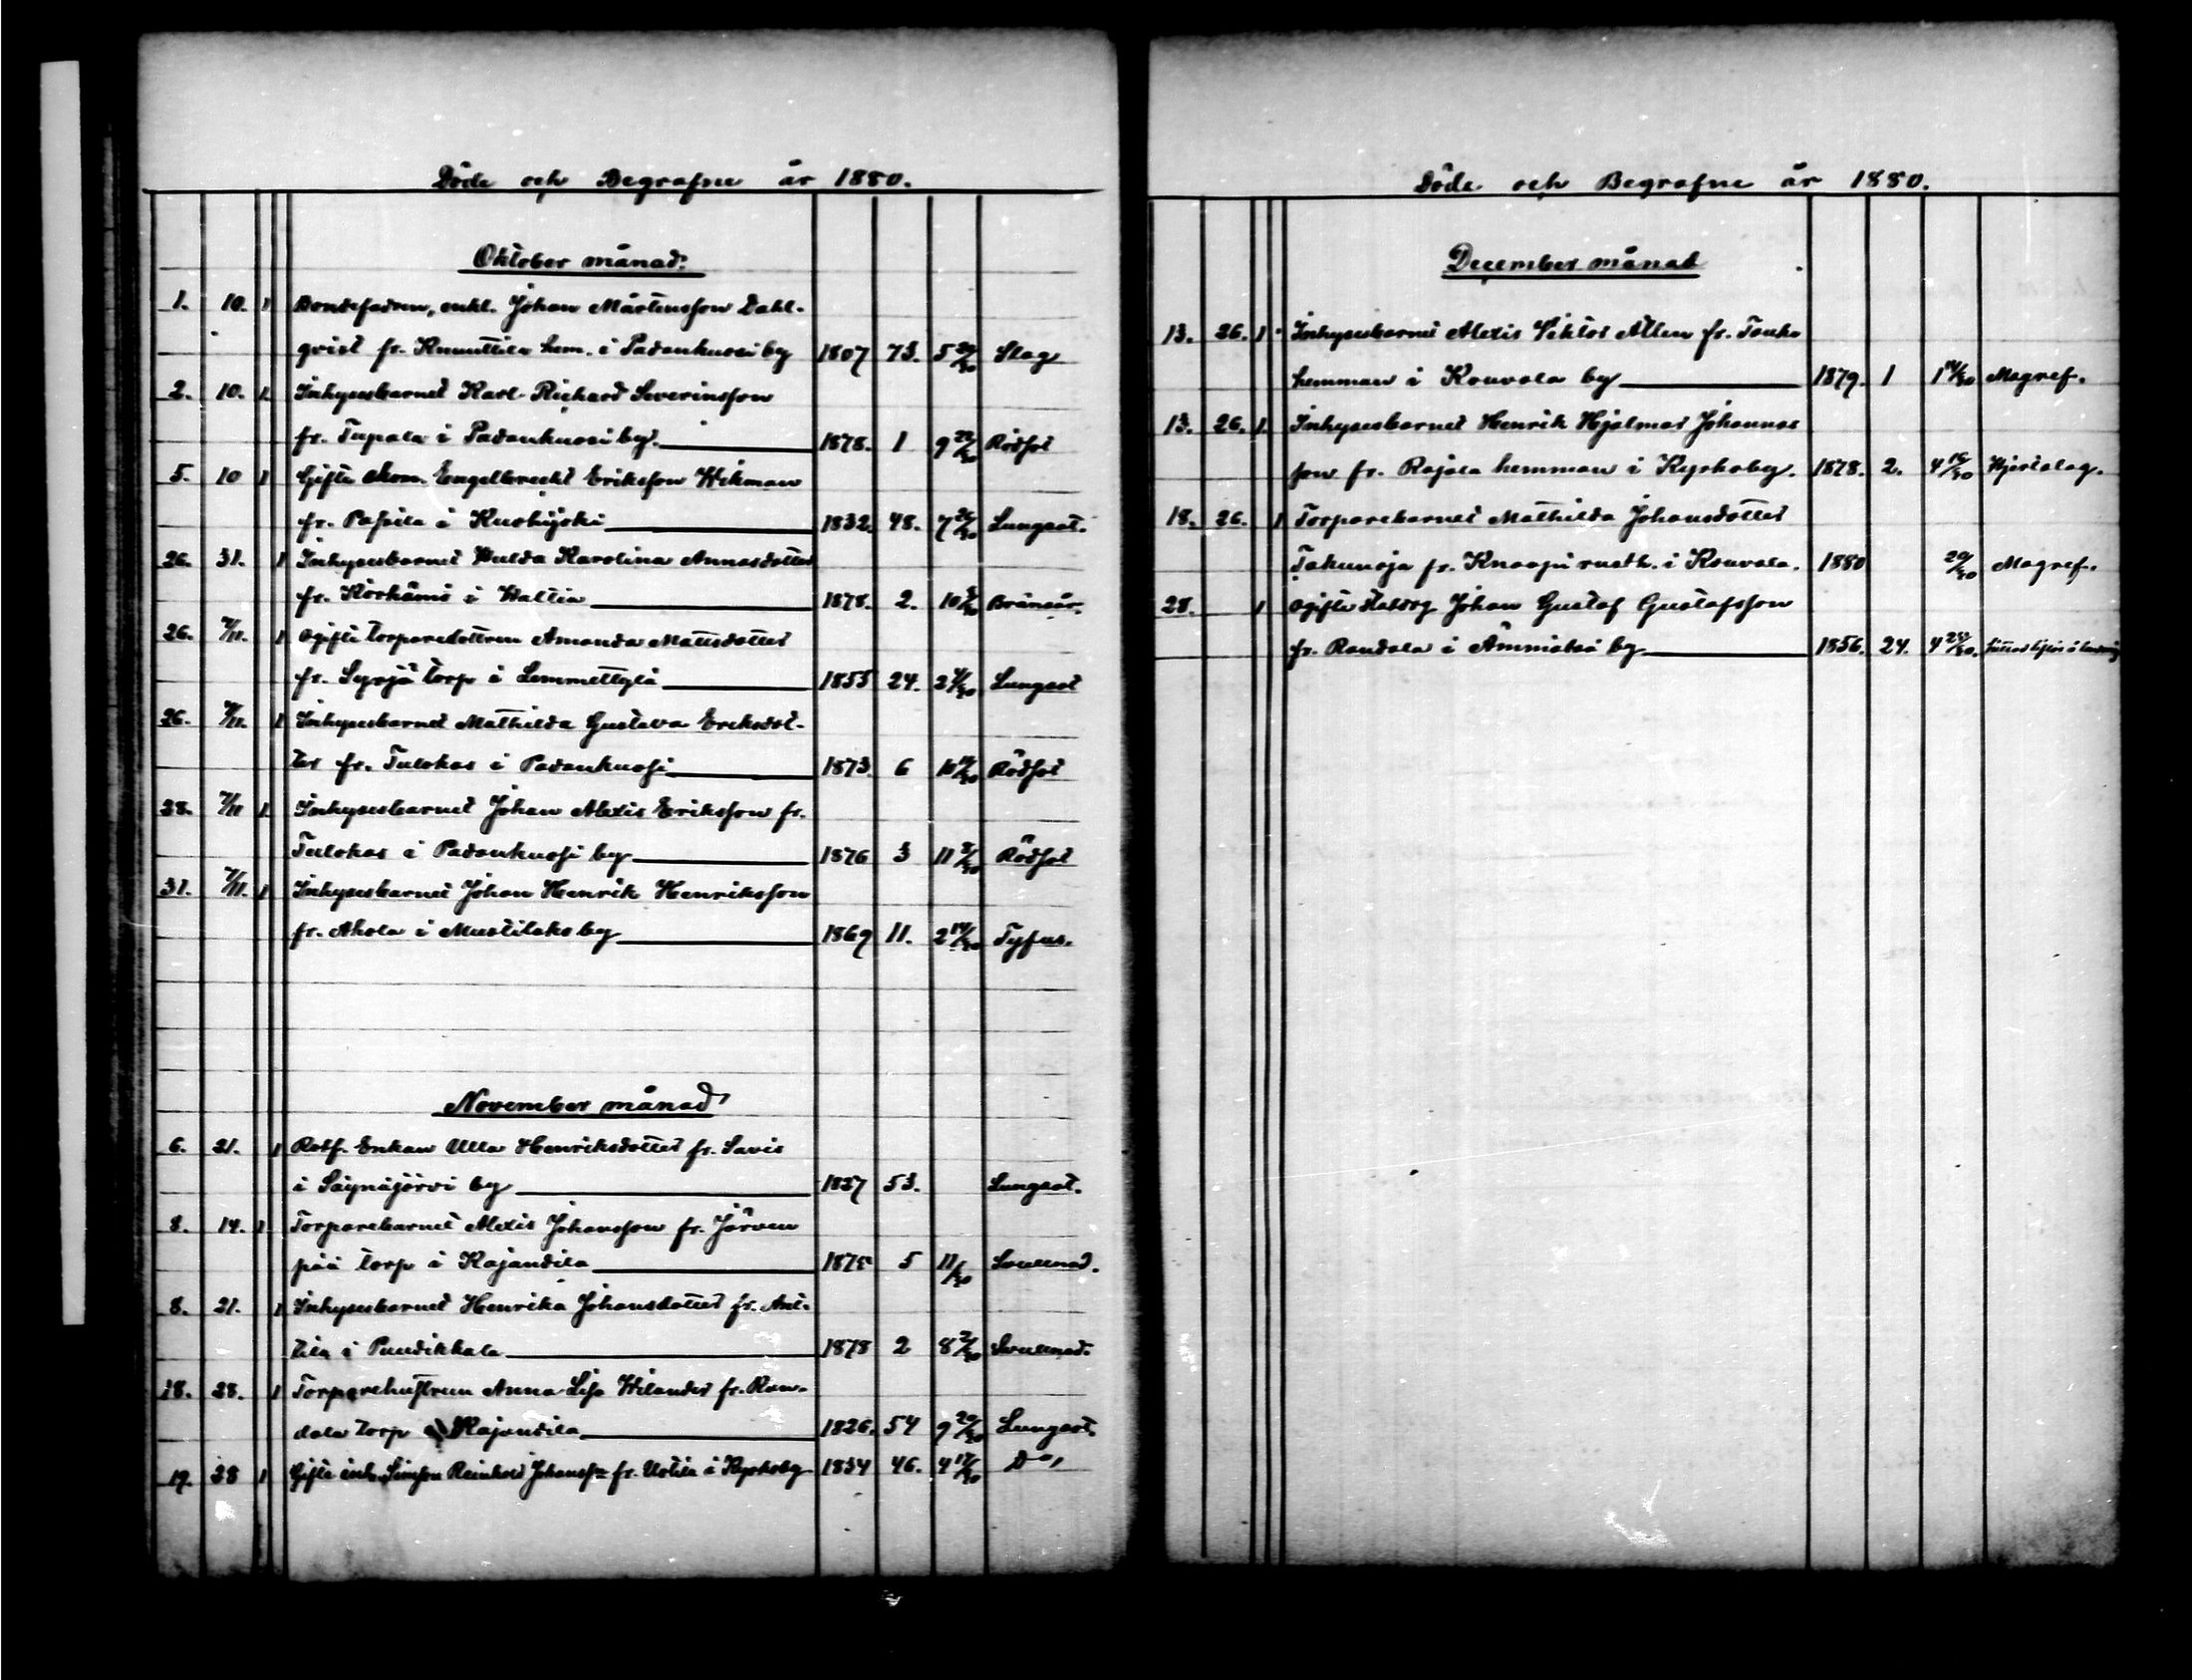 Döde och Begrafne år 1880.
Oktober månad.
1. 10. 1 Bondefadren, enkl. Johan Mårtensson Dahl-
qvist fr. Knuuttila hem. i Padankuosi by 1807 73. 5 /30 Slag
2. 10. 1 Inhysesbarnet Karl Richard Severinsson
fr. Tupala i Padankuosi by. 1878. 1 9 /30 Rödsot
5. 10 1 Gifte skom. Engelbrecht Eriksson Wikman
fr. Passila i Kurkijoki 1832. 48. 7 26/30 Lungsot.
26. 31. 1 Inhysesbarnet Hulda Karolina Annasdotter
fr. i Wallia 1878. 2. 10 /30
26. 7/11. 1 Ogifte torparedottren Amanda Mattsdotter
fr. Syrjä torp i Lemmettylä 1855 24. 2 /30 Lungsot
26. 7/11. 1 Inhysesbarnet Mathilda Gustava Eriksdot-
ter fr. Tulokas i Padankuosi 1873. 6 10 /30 Rödsot
28. 7/11 1 Inhysesbarnet Johan Alexis Eriksson fr.
Tulokas i Padankuosi by 1876 3 11 /30 Rödsot
31. 7/11. 1 Inhysesbarnet Johan Henrik Henriksson
fr. Ahola i Mustilaks by 1869 11. 2 14/30 Tyfus.
November månad
6. 21. 1 Rotf. Enkan Ulla Henriksdotter fr. Savis
i Säynäjärvi by 1827 53. Lungsot.
8. 14. 1 Torparebarnet Alexis Johansson fr. Järven
pää torp i Kajandila 1875 5 11/30
8. 21. 1 Inhysesbarnet Henrika Johansdotter fr. Ant-
tila i Puudikkala 1878 2 8 2/30
18. 28. 1 Torparehustrun Anna Lisa Wilander fr. Ran-
dala torp i Kajandila 1826. 54 9 20/30 Lungsot.
19. 28 1 Gifte inh. Simson Reinhold Johanss:n fr. Uotila i Kyrkoby 1834 46. 4 17/30 D:o,
Döde och Begrafne år 1880.
December månad
13. 26. 1 Inhysesbarnet Alexis Viktor Allen fr. Touko
hemman i Kouvola by 1879. 1 1 14/30 Magref.
13. 26. 1. Inhysesbarnet Henrik Hjalmar Johannes
son fr. Rajala hemman i Kyrkoby. 1878. 2. 4 15/30 Hjertslag.
18. 26. 1 Torparebarnet Mathilda Johansdotter
Takunoja fr. Knaapi rusth. i Kouvala. 1880 20/30 Magref.
28. 1 Ogifte Johan Gustaf Gustafsson
fr. Randala i Ämmätsä by 1856. 24. 4 25/30.